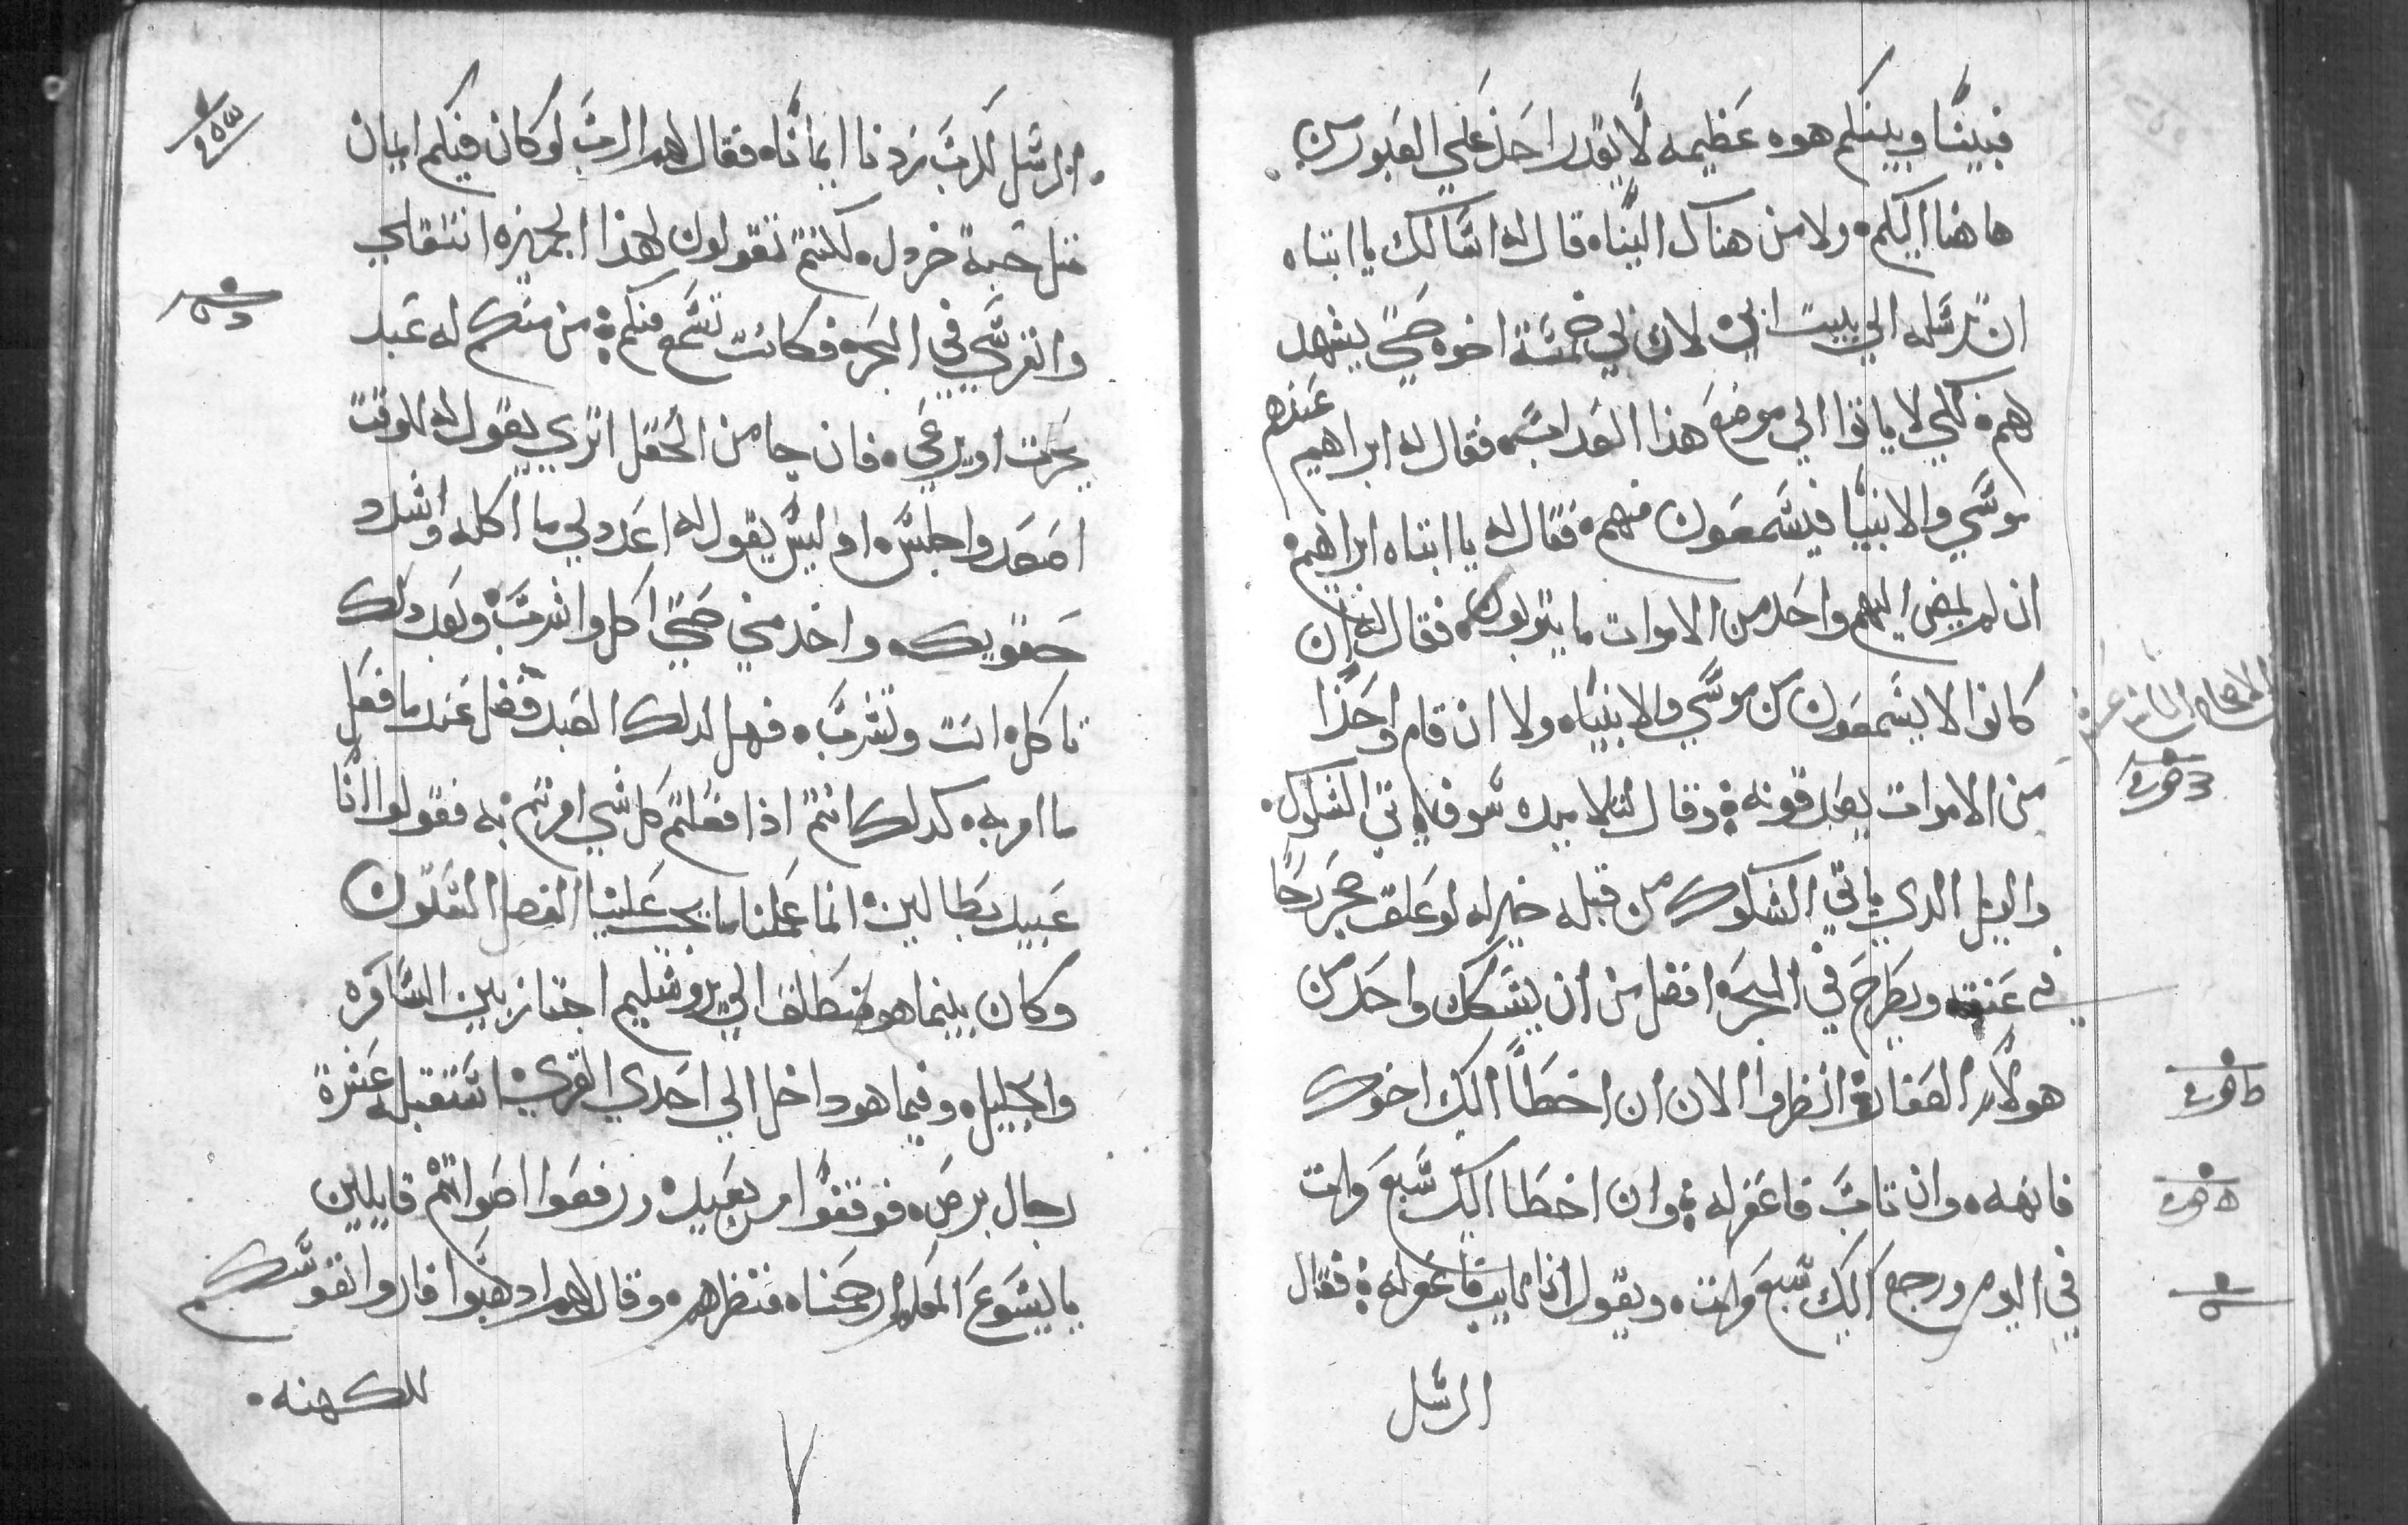 فبيننا وبينكم هوه عظيمه لا يقدر احد علي العبور من
هاهنا اليكم ولا من هناك الينا قال له اسالك يا ابتاه
ان ترسله الي بيت ابي لان لي خمسة اخوه حتي يشهد
لهم لكي لا ياتوا الي موضع هذا العداب فقال له ابراهيم عندهم
موسي والانبيا فيسمعون منهم فقال له يا ابتاه ابراهيم
ان لم يمض اليهم واحد من الاموات ما يتوبون فقال له ان
كانوا لا يسمعون من موسي والانبيا ولا ان قام واحدا
من الاموات يصدقونه وقال لتلاميده سوف تاتي الشكوك
والويل الدي ياتي الشكوك من قبله خير له لو علق حجر رحا
في عنقه ويطرح في البحر افضل من ان يشكك واحد من
هولاء الصغار انظروا الان ان اخطا اليك اخوك
فانهه وان تاب فاغفر له وان اخطا اليك سبع مرات
في اليوم ورجع اليك سبع مرات ويقول انا تايب فاغفر له فقال
الرسل
الرسل للرب زدنا ايمانا فقال لهم الرب لو كان فيكم ايمان
مثل حبة خردل لكنتم تقولون لهذا الجميزه انتقلي
وانغرسي في البحر فكانت تسمع منكم من منكم له عبد
يحرت او يرعي فان جا من الحقل اتري يقول له للوقت
اصعد واجلس او ليس يقول له اعد لي ما اكله واشدد
حقويك واخدمني حتي اكل واشرب وبعد دلك
تاكل انت وتشرب فهل لدلك العبد فضل عند ما فعل
ما امر به كدلك انتم اذا فعلتم كل شي امرتم به فقولوا انا
عبيد بطالين انما عملنا ما يجب علينا الفصل
وكان بينما هو منطلق الي يروشليم اجتاز بين السامره
والجليل وفيما هو داخل الي احدي القري استقبله عشرة
رجال برص فوقفوا من بعيد ورفعوا اصواتهم قايلين
يا يسوع المعلم ارحمنا فنظرهم وقال لهم ادهبوا فاروا نفوسكم
للكهنه